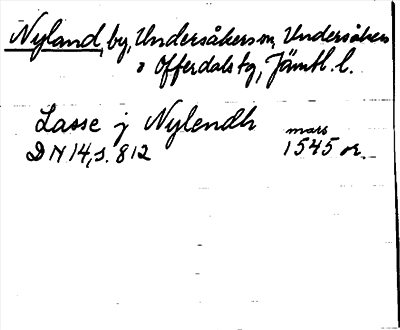 Nyland, by, Undersåkers sn, Undersåkers
o Offerdals tg, Jämtl. l.
Lasse j Nylendh mars
DN 14, s. 812 1545 or.